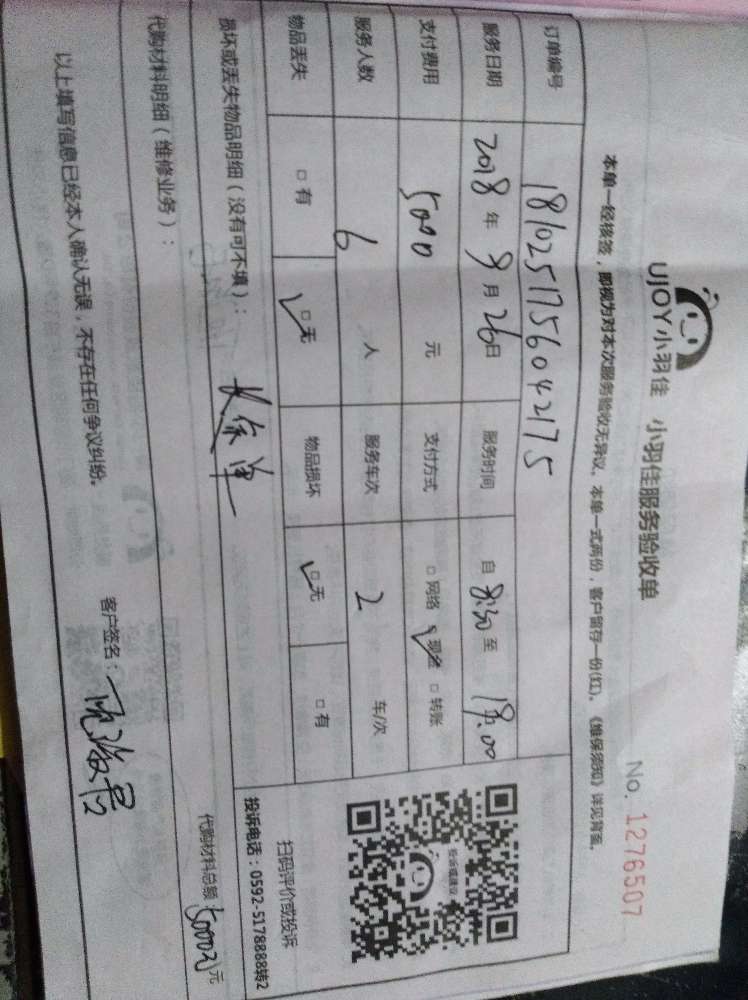 UJOY小羽佳 小羽佳服务验收单
No. 1276507
本单一经核签，即视为对本次服务验收无异议，本单一式两份，客户留存一份(红)。《维保须知》详见背面。
订单编号 1810251756042175
服务日期 2018年9月26日 服务时间 自8:30至18:00
支付费用 5000元 支付方式 □网络 □现金 □转账
服务人数 6人 服务车次 2车/次
物品丢失 □有 □无 物品损坏 □无 □有
投诉或建议
扫码评价或投诉
投诉电话：0592-5178888转2
损坏或丢失物品明细（没有可不填）：
代购材料明细（维修业务）：
代购材料总额：5000元
以上填写信息已经本人确认无误，不存在任何争议纠纷。
客户签名：